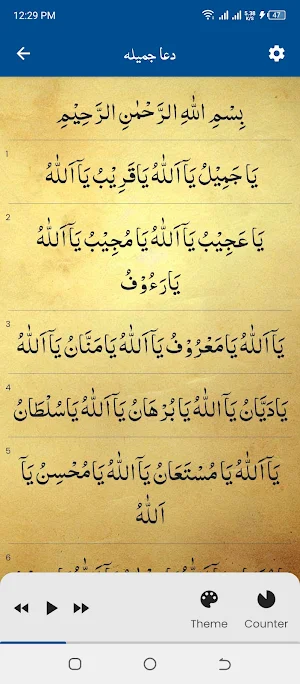 12:29 PM
5.38 K/s
47
دعا جمیله
بِسْمِ اللهِ الرَّحْمٰنِ الرَّحِيْمِ
1
يَا جَمِيْلُ يَآ اَللّٰهُ يَا قَرِيْبُ يَآ اَللّٰهُ
2
يَا عَجِيْبُ يَآ اَللّٰهُ يَا مُجِيْبُ يَآ اَللّٰهُ
يَا رَءُوْفُ
3
يَآ اَللّٰهُ يَا مَعْرُوْفُ يَآ اَللّٰهُ يَا مَنَّانُ يَآ اَللّٰهُ
4
يَا دَيَّانُ يَآ اَللّٰهُ يَا بُرْهَانُ يَآ اَللّٰهُ يَا سُلْطَانُ
5
يَآ اَللّٰهُ يَا مُسْتَعَانُ يَآ اَللّٰهُ يَا مُحْسِنُ يَآ
اَللّٰهُ
6
Theme
Counter